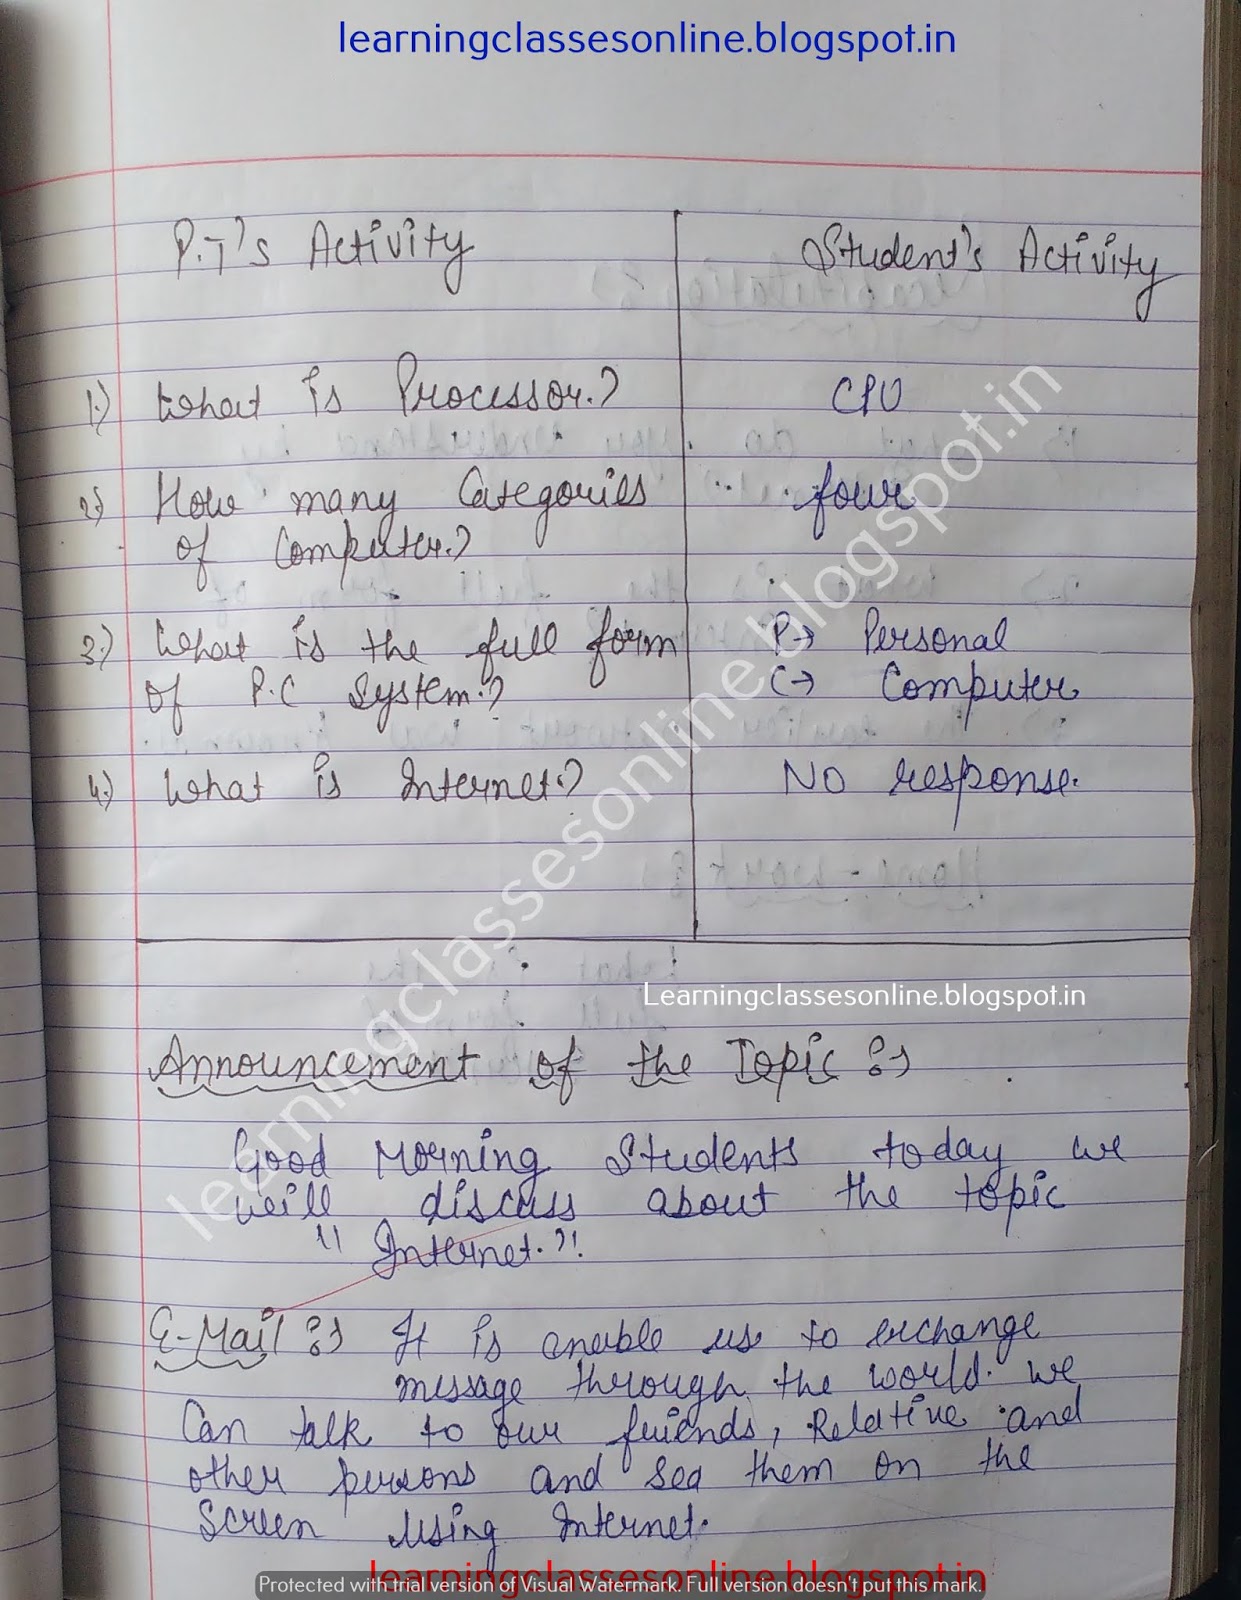 learningclassesonline.blogspot.in
P.T's Activity Student's Activity
1.) What is Processor.? CPU
2.) How many Categories four
of Computer.?
3.) What is the full form P→ Personal
of P.C System.? C→ Computer
4.) What is Internet.? No response.
learningclassesonline.blogspot.in
Learningclassesonline.blogspot.in
Announcement of the Topic :→
Good Morning Students today we
will discuss about the topic
"Internet."
E-Mail :→ It is enable us to exchange
message through the world. We
Can talk to our friends, Relative and
other persons and sea them on the
Screen using Internet.
learningclassesonline.blogspot.in
Protected with trial version of Visual Watermark. Full version doesn't put this mark.